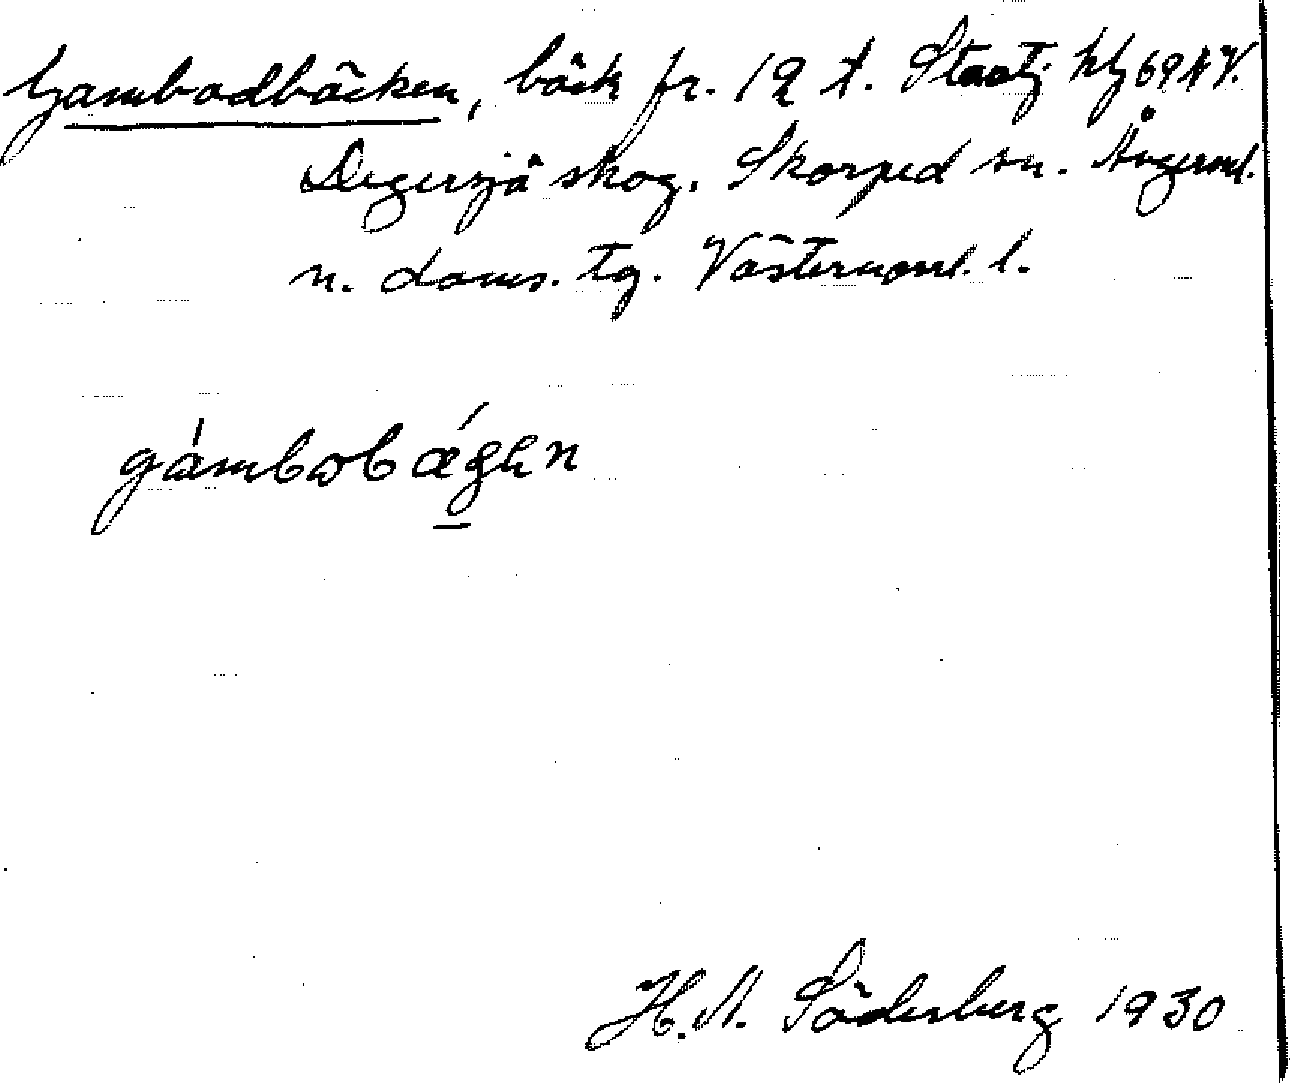 Gambodbäcken, bäck fr. 19 t. Stortj. hly 69 AV.
Degersjö skog. Skorped sn. Ångerml.
n. doms. tg. Västernorrl. l.
gámbωbǽgen
H.A. Söderberg 1930